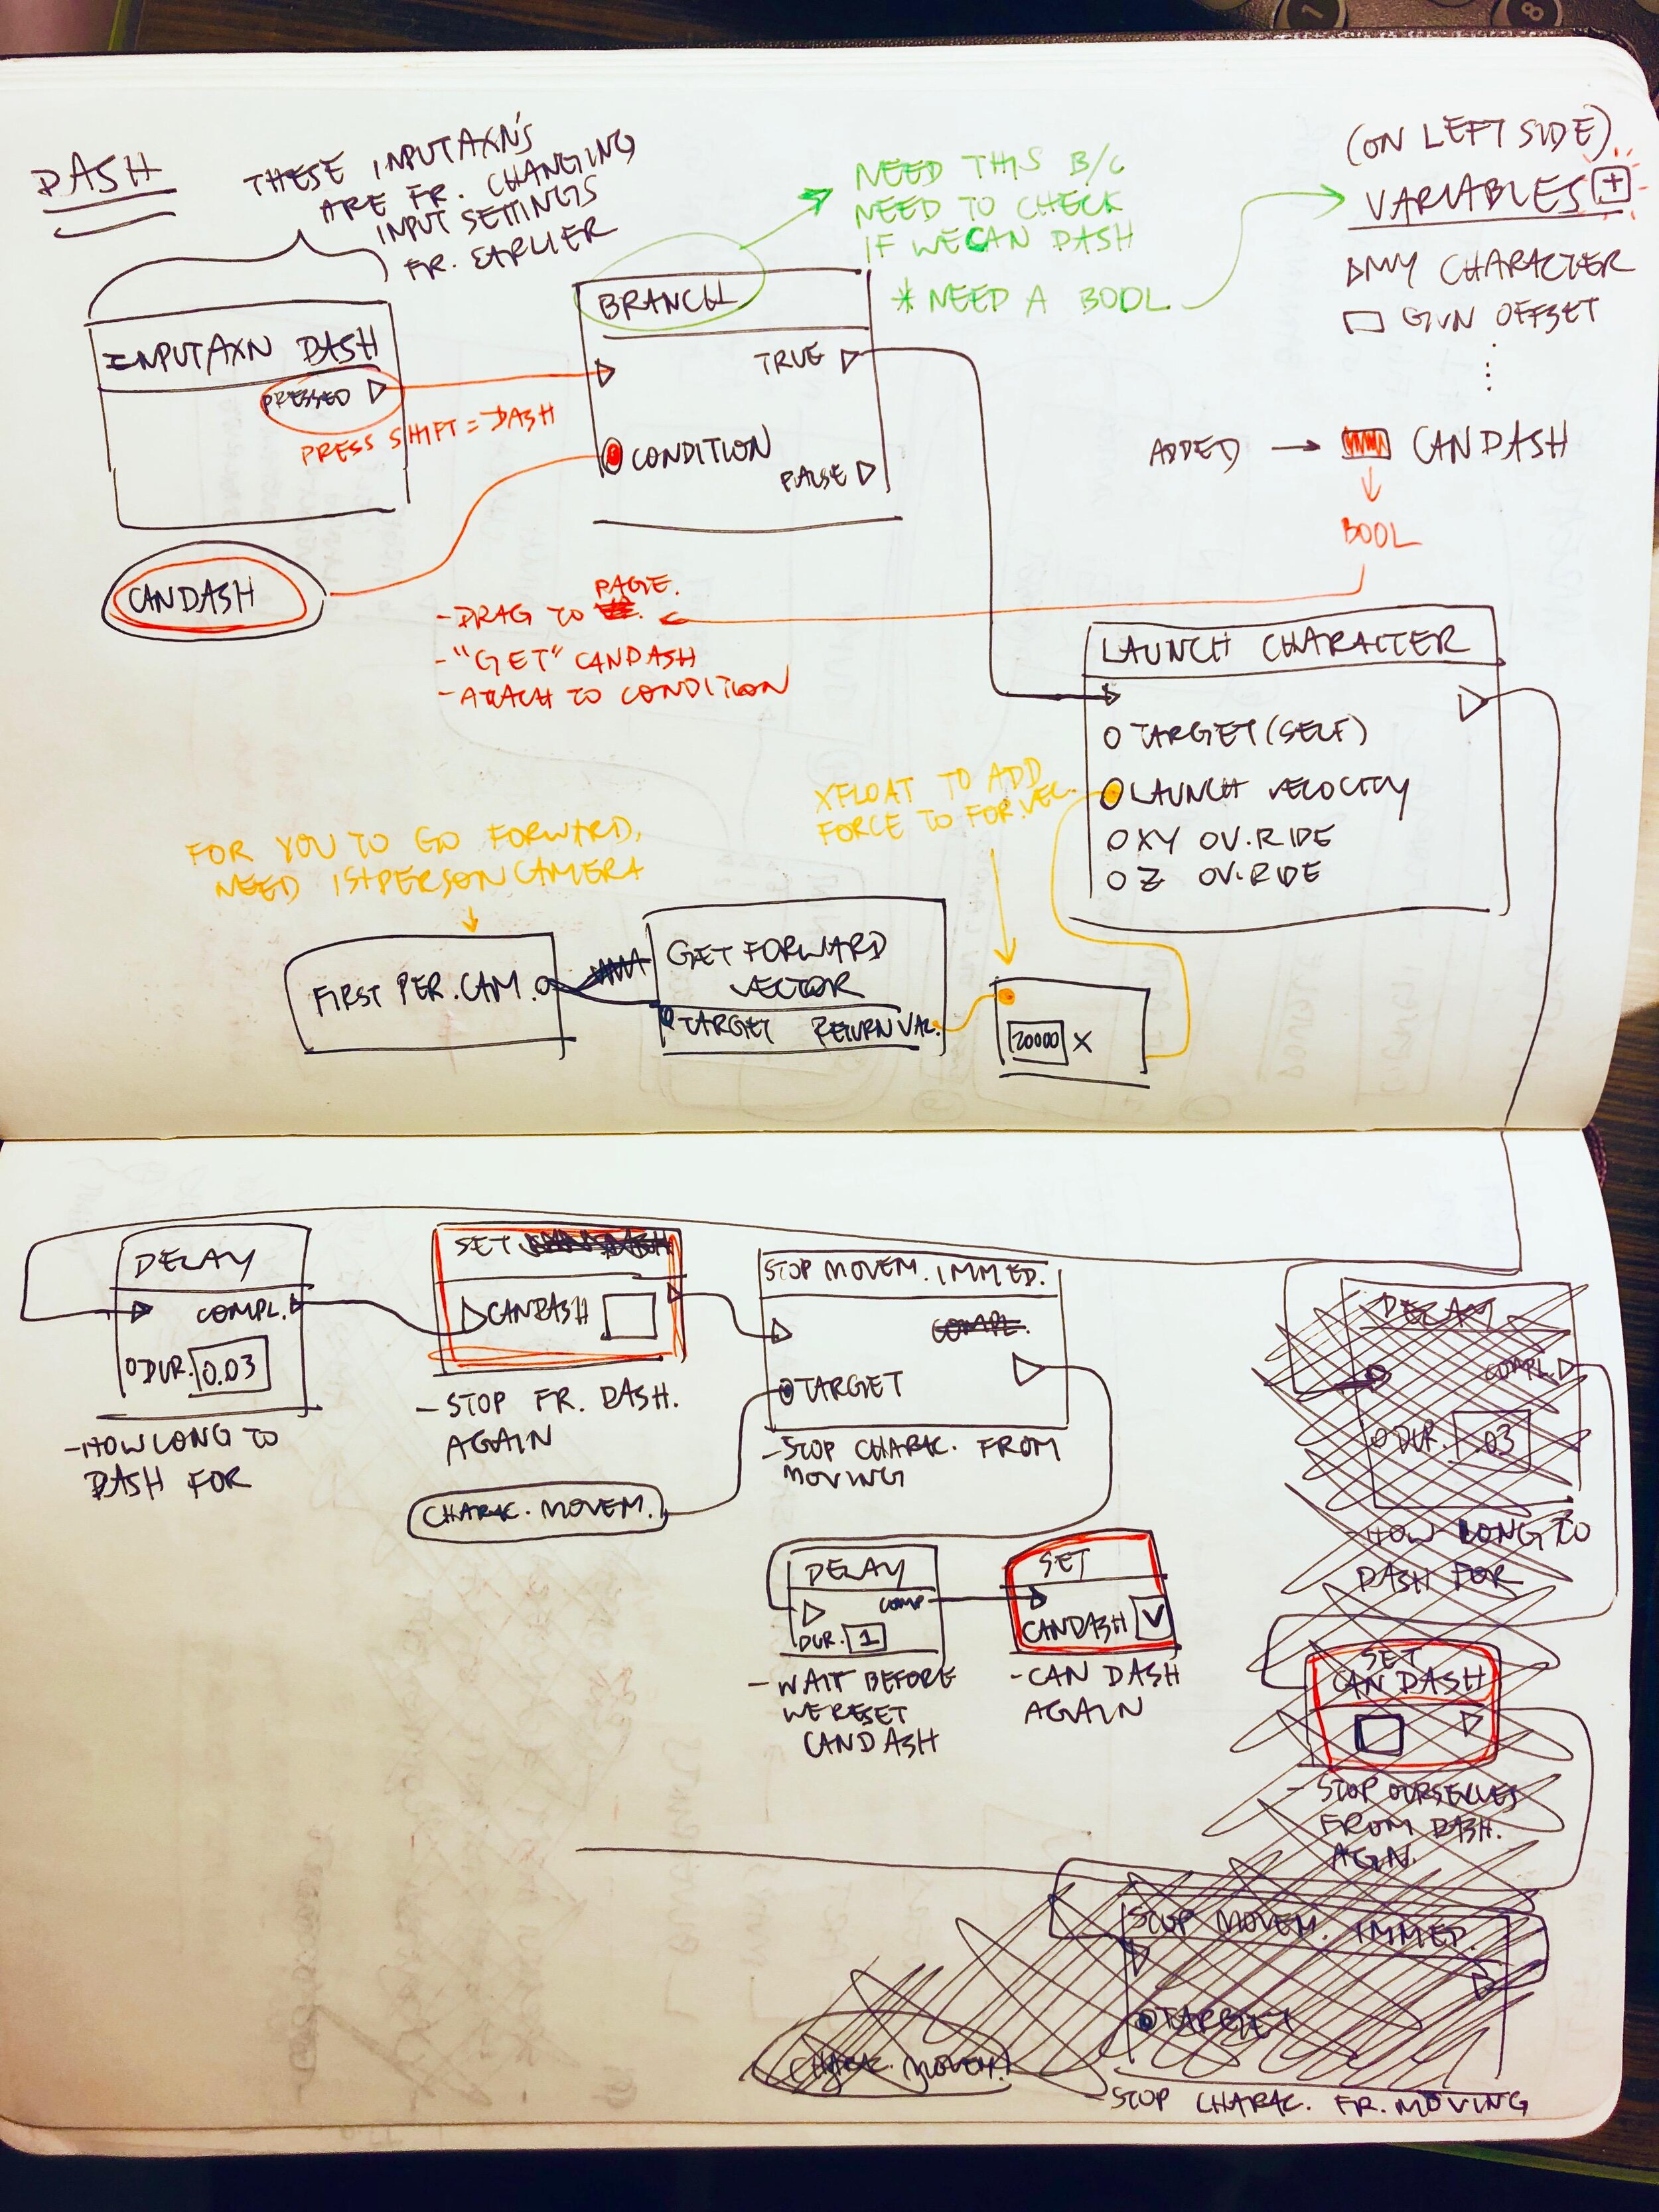 DASH
THESE INPUTAXN'S
ARE FR. CHANGING
INPUT SETTINGS
FR. EARLIER
INPUTAXN DASH
PRESSED
PRESS SHIFT = DASH
BRANCH
TRUE
CONDITION
FALSE
NEED THIS B/C
NEED TO CHECK
IF WE CAN DASH
* NEED A BOOL
(ON LEFT SIDE)
VARIABLES +
MY CHARACTER
GUN OFFSET
ADDED → CANDASH
BOOL
CANDASH
- DRAG TO PAGE.
- "GET" CANDASH
- ATTACH TO CONDITION
LAUNCH CHARACTER
TARGET (SELF)
LAUNCH VELOCITY
XY OV.RIDE
Z OV.RIDE
XFLOAT TO ADD
FORCE TO FOR.VEC.
FOR YOU TO GO FORWARD,
NEED 1ST PERSON CAMERA
FIRST PER. CAM.
GET FORWARD
VECTOR
TARGET RETURN VAL.
20000 X
DELAY
COMPL.
DUR. 0.03
- HOW LONG TO
DASH FOR
SET
CANDASH
- STOP FR. DASH.
AGAIN
STOP MOVEM. IMMED.
COMPL.
TARGET
- STOP CHARAC. FROM
MOVING
CHARAC. MOVEM.
DELAY
COMP
DUR. 1
- WAIT BEFORE
WE RESET
CANDASH
SET
CANDASH V
- CAN DASH
AGAIN
DELAY
COMPL.
DUR. .03
- HOW LONG TO
DASH FOR
SET
CAN DASH
- STOP OURSELVES
FROM DASH.
AGN.
STOP MOVEM. IMMED.
TARGET
CHARAC. MOVEM.
- STOP CHARAC. FR. MOVING